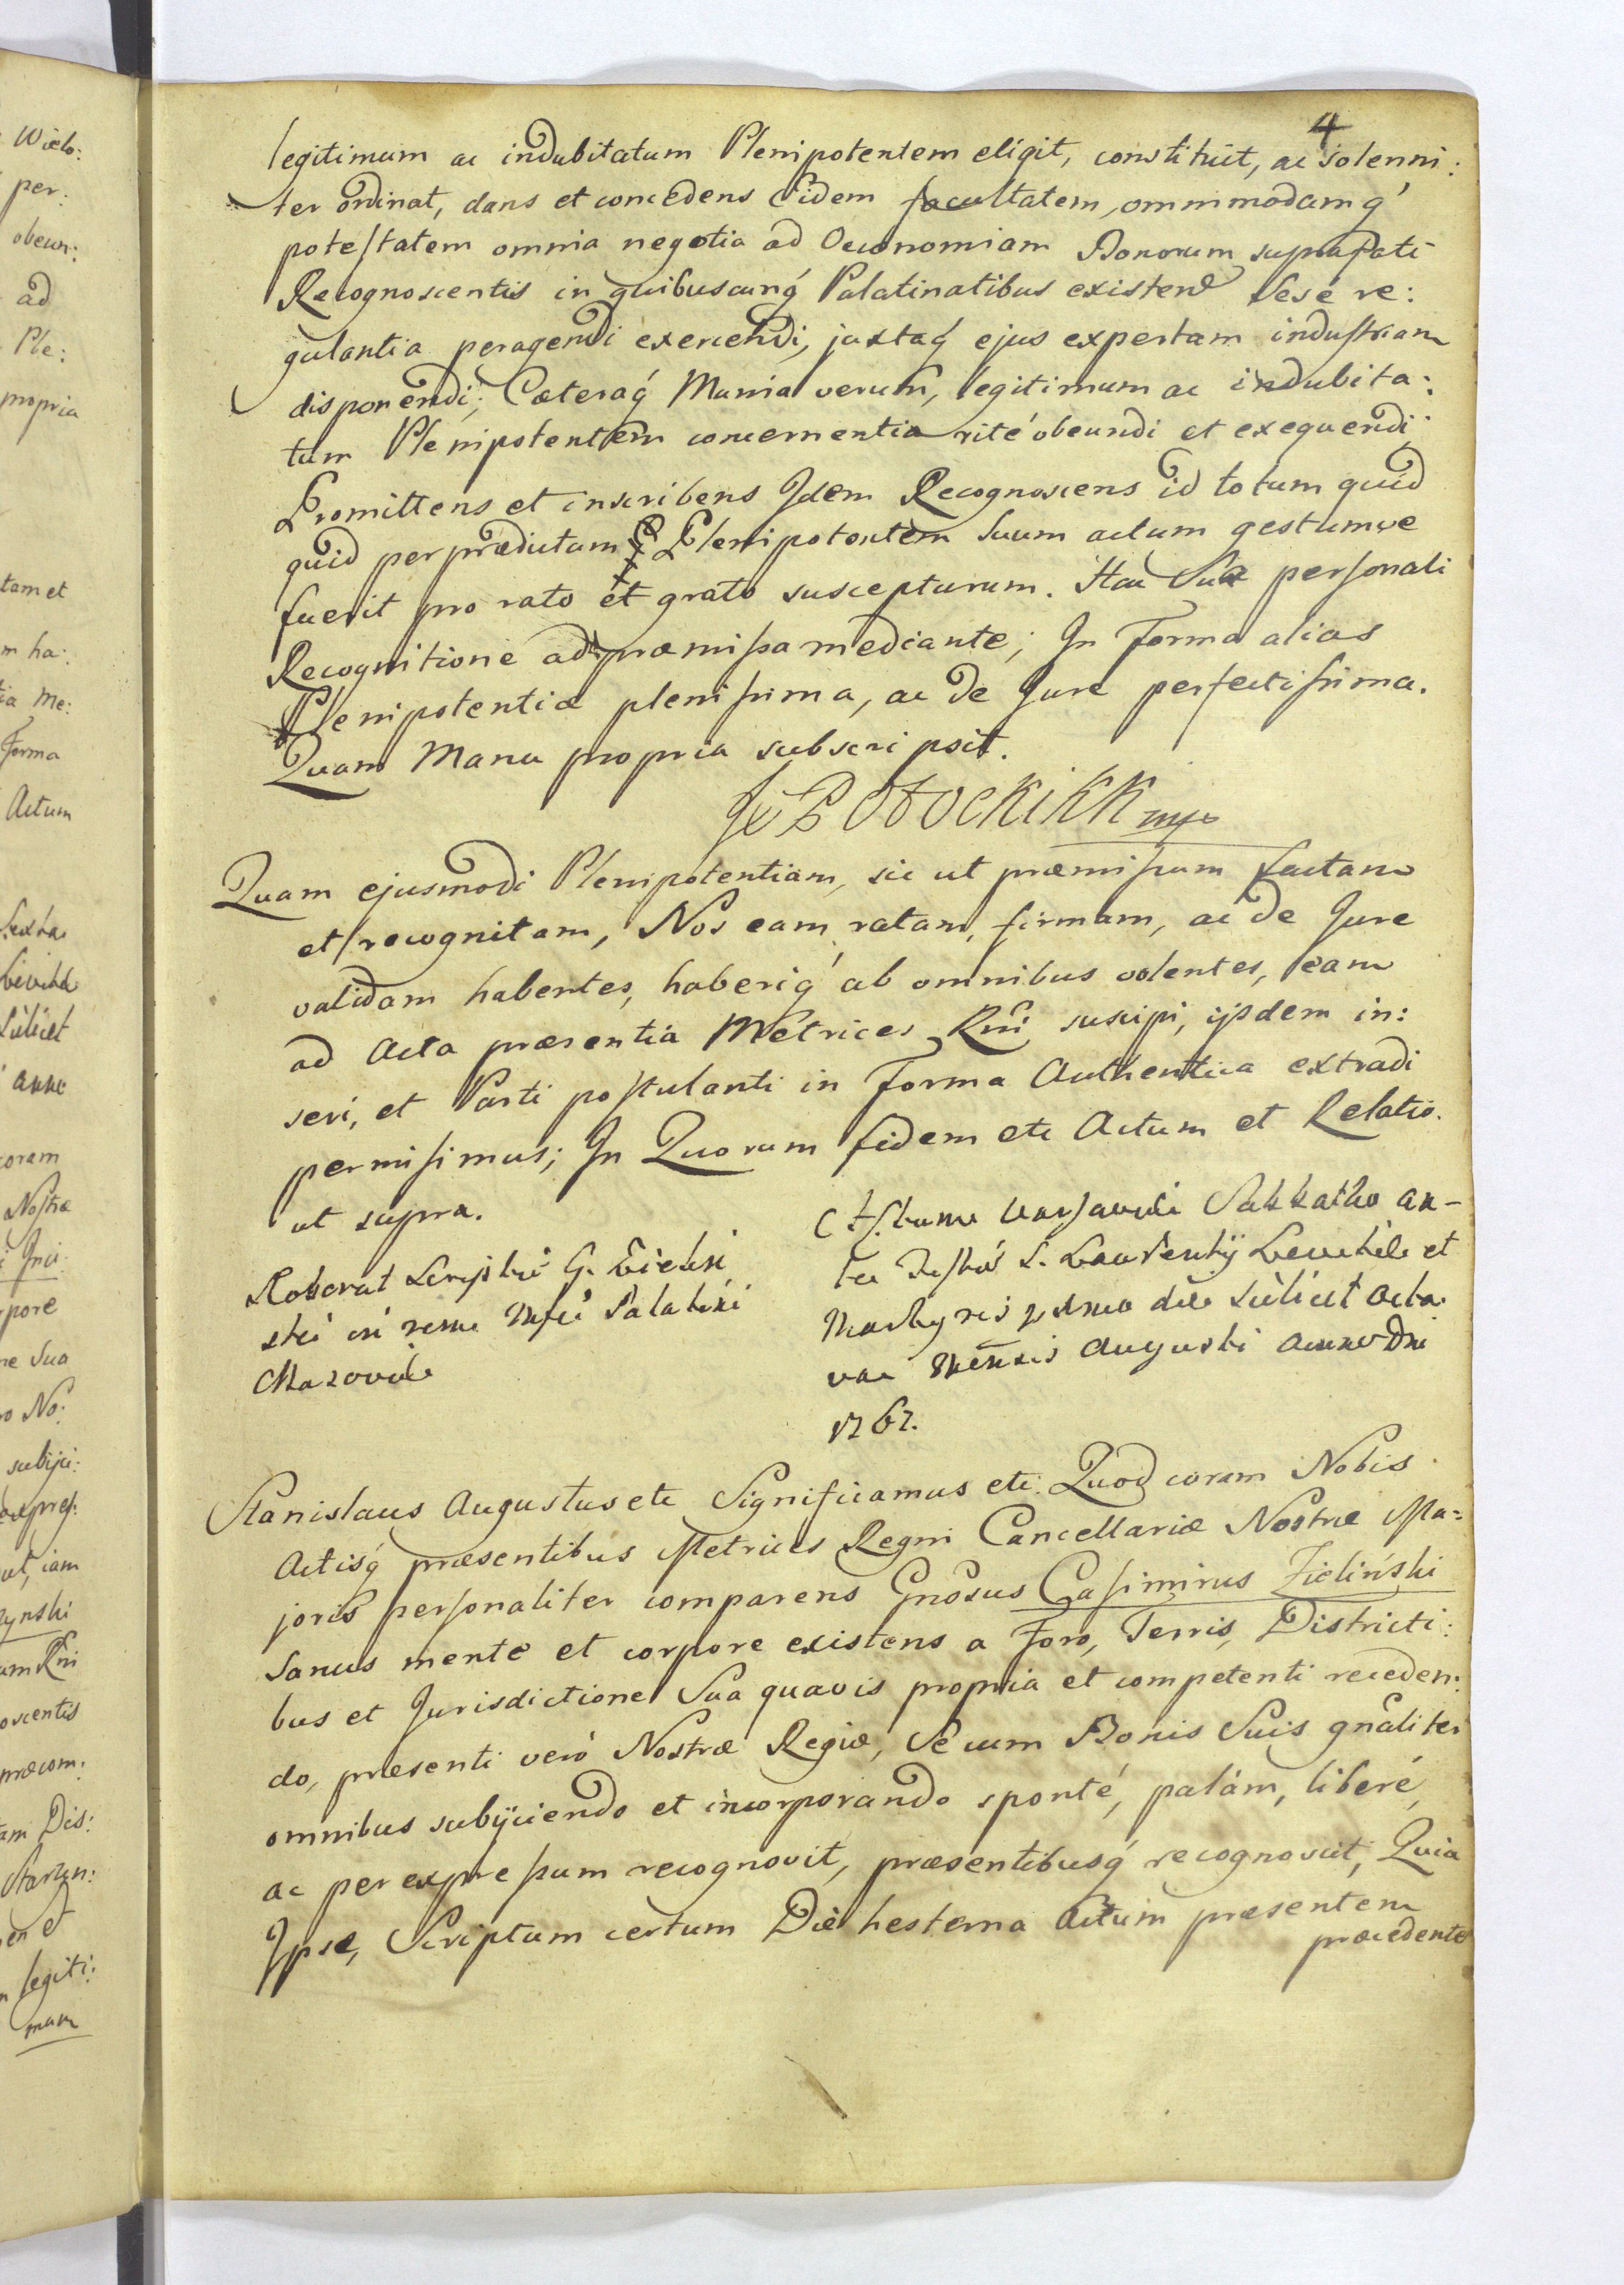 4
legitimum ac indubitatum Plenipotentem eligit, constituit, ac solenni:
ter ordinat, dans et concedens Eidem facultatem, omnimodamq́
potestatem omnia negotia ad Oeconomiam Bonorum suprafati
Recognoscentis in quibuscunq́ Palatinatibus existen Sesé re:
gulantia peragendi exercendi, juxtaq́ ejus expertam industriam
disponendi; Cæteraq́ Munia verum, legitimum ac indubita:
tum Plenipotentem concernentia rité obeundi et exequendi
Promittens et inscribens Idem Recognoscens id totum quid
quid per prædictum Plenipotentem Suum actum gestumve
fuerit pro rato et grato suscepturum. Hac Sua personali
Recognitione ad præmissa mediante; In Forma alias
Plenipotentiæ plenissima, ac de Jure perfectissima.
Quam Manu propria subscripsit.
POTOCKI KK mp
Quam ejusmodi Plenipotentiam, sic ut præmissum factam
et recognitam, Nos eam ratam, firmam, ac de Jure
validam habentes, haberiq́ ab omnibus volentes, eam
ad Acta præsentia Métrices Rni suscipi, ijsdem in:
seri, et Parti postulanti in Forma Authentica extradi
permisimus; In Quorum fidem etc Actum et Relatio.
ut supra.
Roborat Scripti G. Zielin
ski
Palatini
Mazoviæ
Actum Varsaviæ Sabbatho an-
te Festum S. Laurentij Levitæ et
Martyris die scilicet octa
va Mensis Augusti Anno Dni
1767.
Stanislaus Augustus etc Significamus etc. Quod coram Nobis
Actisq́ præsentibus Metrices Regni Cancellariæ Nostræ Ma=
joris personaliter comparens Gnosus Casimirus Zieliński
Sanus mente et corpore existens a Foro, Terris, Districti:
bus et Jurisdictione Sua quavis propria et competenti receden:
do, præsenti veró Nostræ Regiæ, Se cum Bonis Suis gnãliter
omnibus subijciendo et incorporando sponté, palám, liberé,
ac per expressum recognovit, præsentibusq́ recognoscit, Quia
Ipse, Scriptum certum Die hesterna Actum præsentem
præcedente